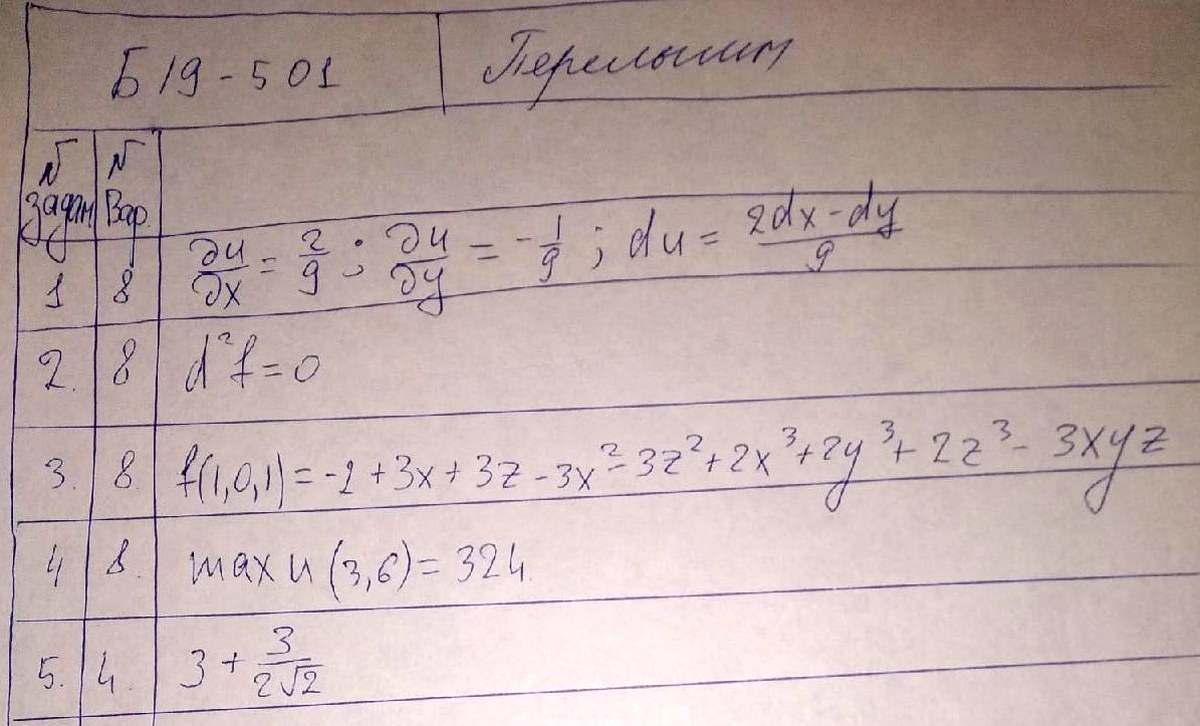 Б19-501
N задан. N Вар.
1 8 ∂u/∂x = 2/9; ∂u/∂y = -1/9; du = (2dx-dy)/9
2. 8 d²f=0
3. 8. f(1,0,1)=-2+3x+3z-3x²-3z²+2x³+2y³+2z³-3xyz
4 8. max u (3,6)=324.
5. 4. 3+3/(2√2)